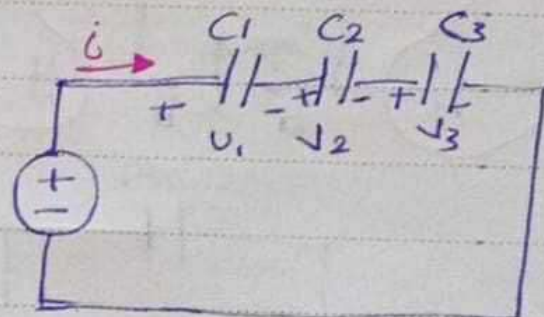 i C1 C2 C3
+ - + - + -
v₁ v2 v3
+
-